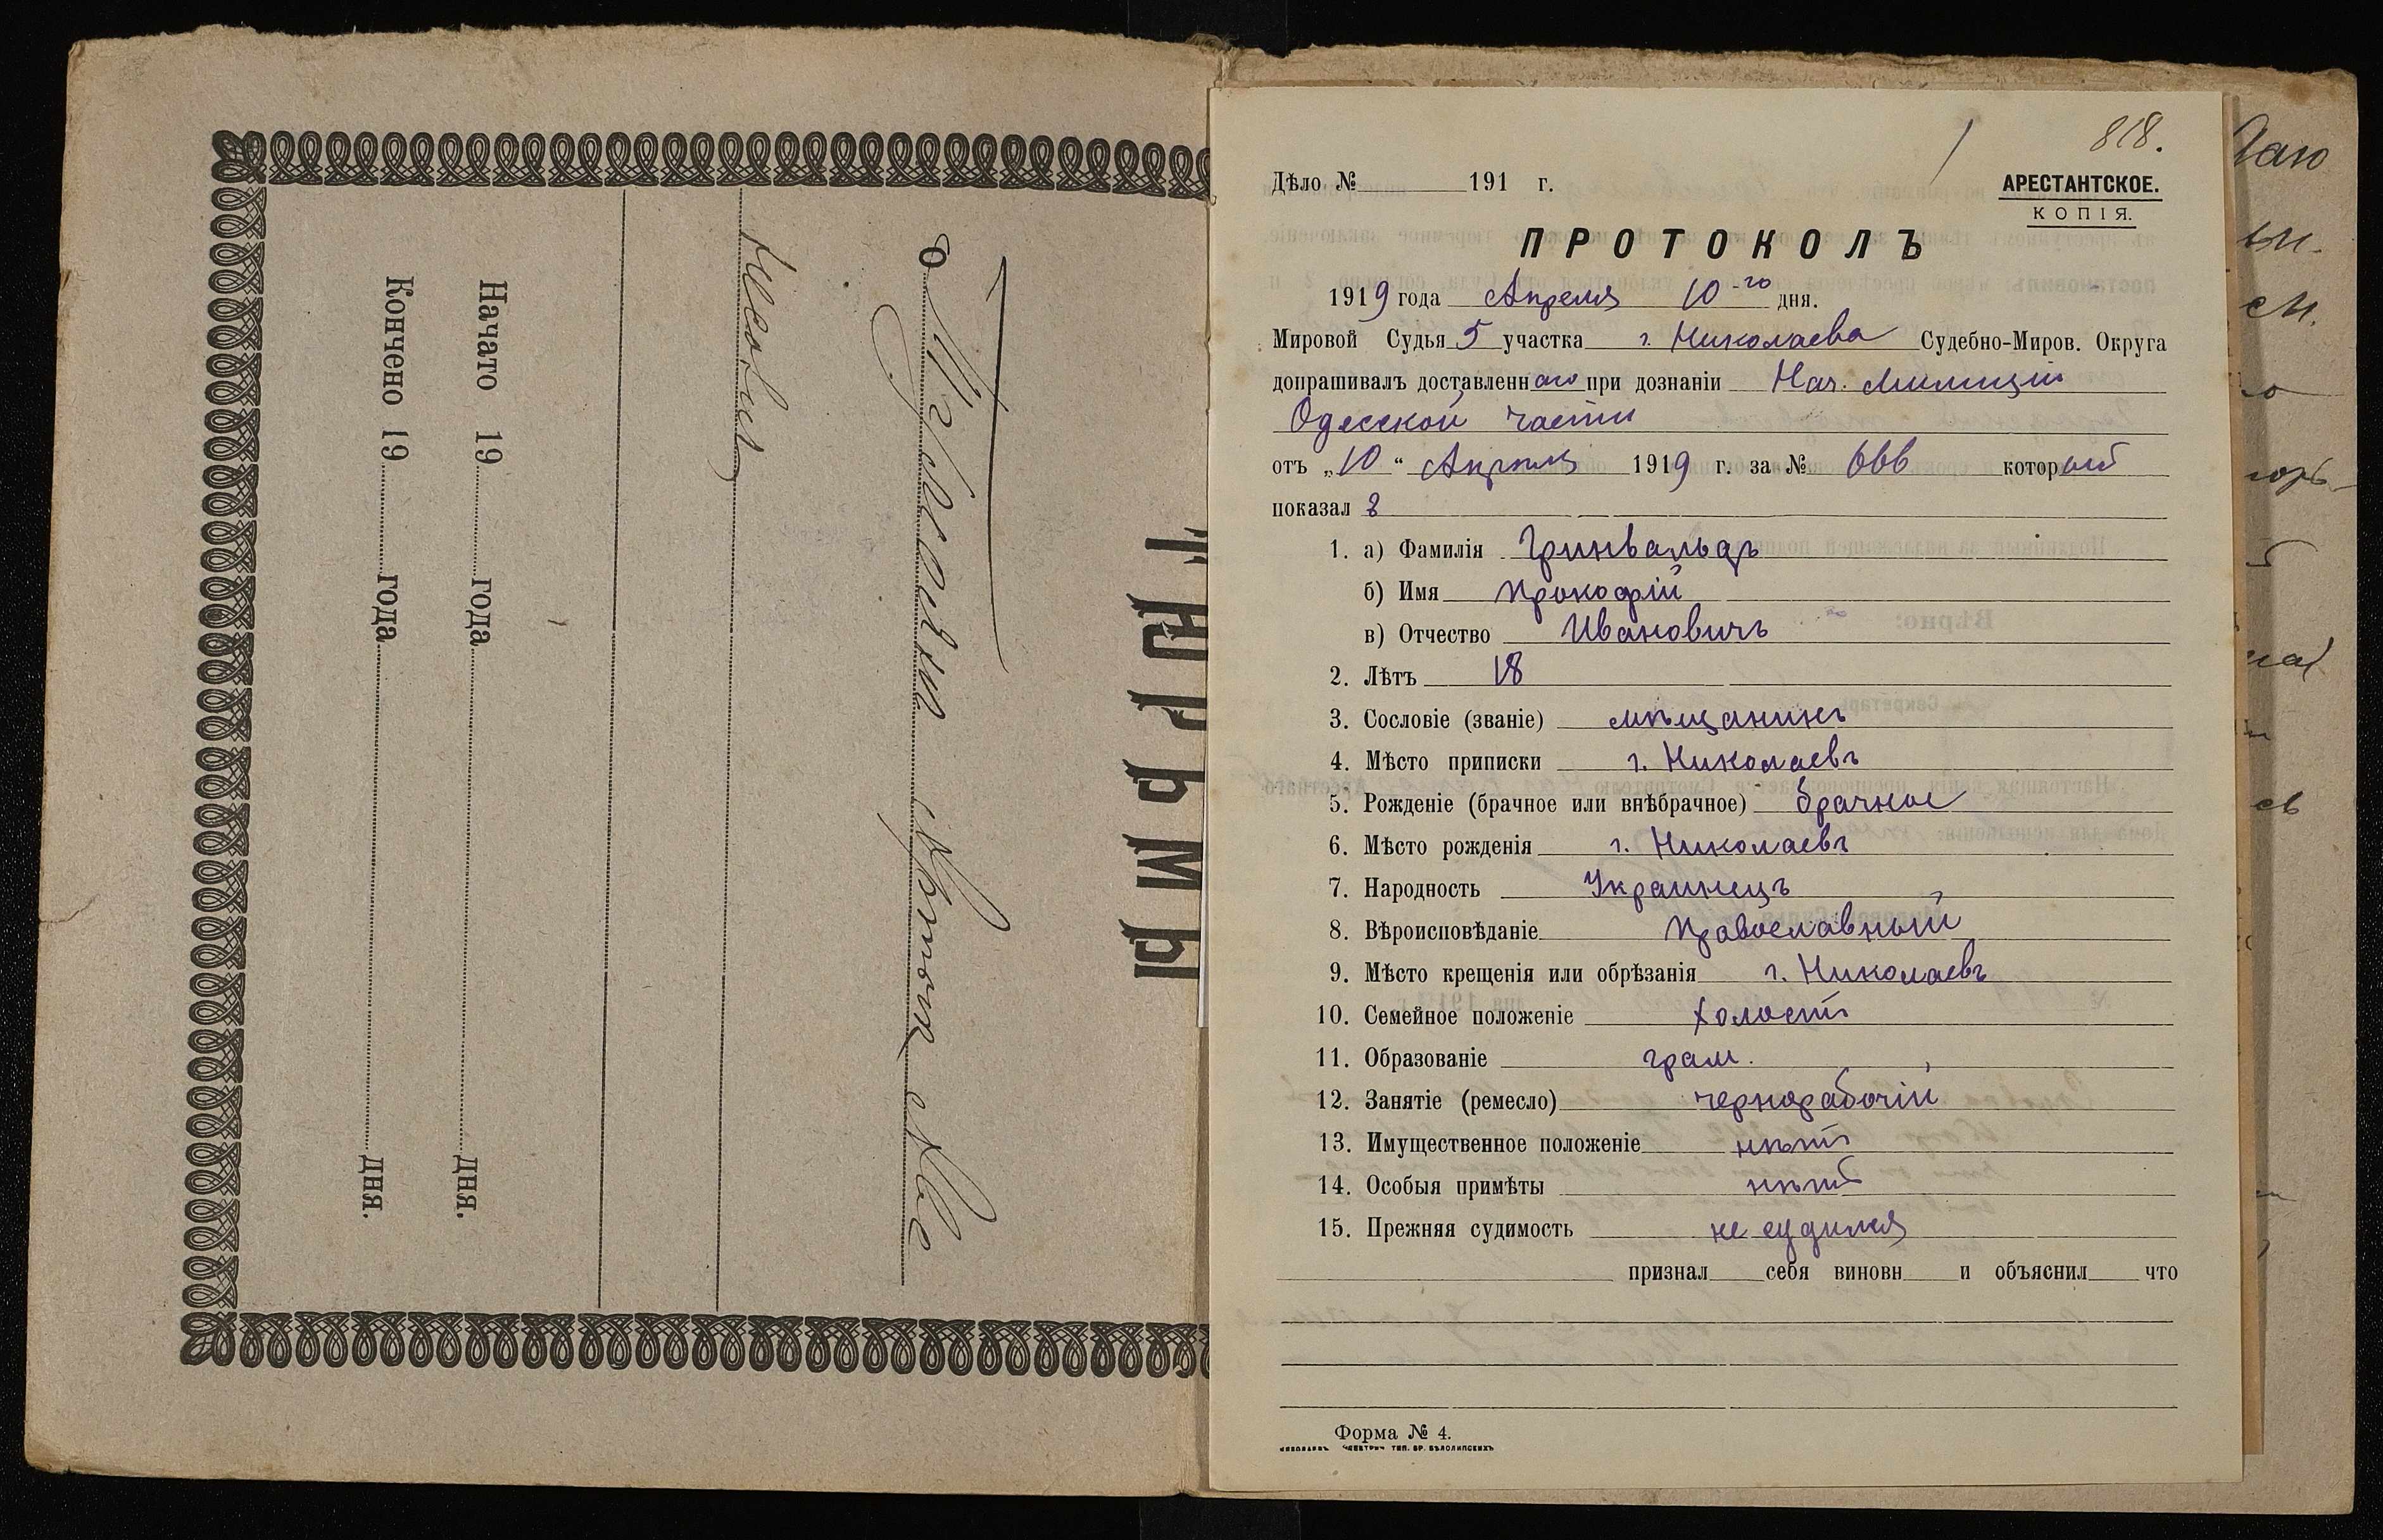 ТЮРЬМЫ
о
Начато 19 года дня.
Кончено 19 года дня.
818.
Дѣло № 191 г.
АРЕСТАНТСКОЕ.
КОПІЯ.
ПРОТОКОЛЪ
1919 года Апреля 10-го дня.
Мировой Судья 5 участка г. Николаева Судебно-Миров. Округа
допрашивалъ доставленнаго при дознаніи Нач. Милиціи
Одесской части
отъ „10“ Апреля 1919 г. за № 666 который
показалъ
1. а) Фамилія Гринвальдъ
б) Имя Прокофій
в) Отчество Ивановичъ
2. Лѣтъ 18
3. Сословіе (званіе) мѣщанинъ
4. Мѣсто приписки г. Николаевъ
5. Рожденіе (брачное или внѣбрачное) брачное
6. Мѣсто рожденія г. Николаевъ
7. Народность Украинецъ
8. Вѣроисповѣданіе Православный
9. Мѣсто крещенія или обрѣзанія г. Николаевъ
10. Семейное положеніе холостъ
11. Образованіе грам.
12. Занятіе (ремесло) чернорабочій
13. Имущественное положеніе нѣтъ
14. Особыя примѣты нѣтъ
15. Прежняя судимость не судился
признал себя виновн и объяснил что
Форма № 4.